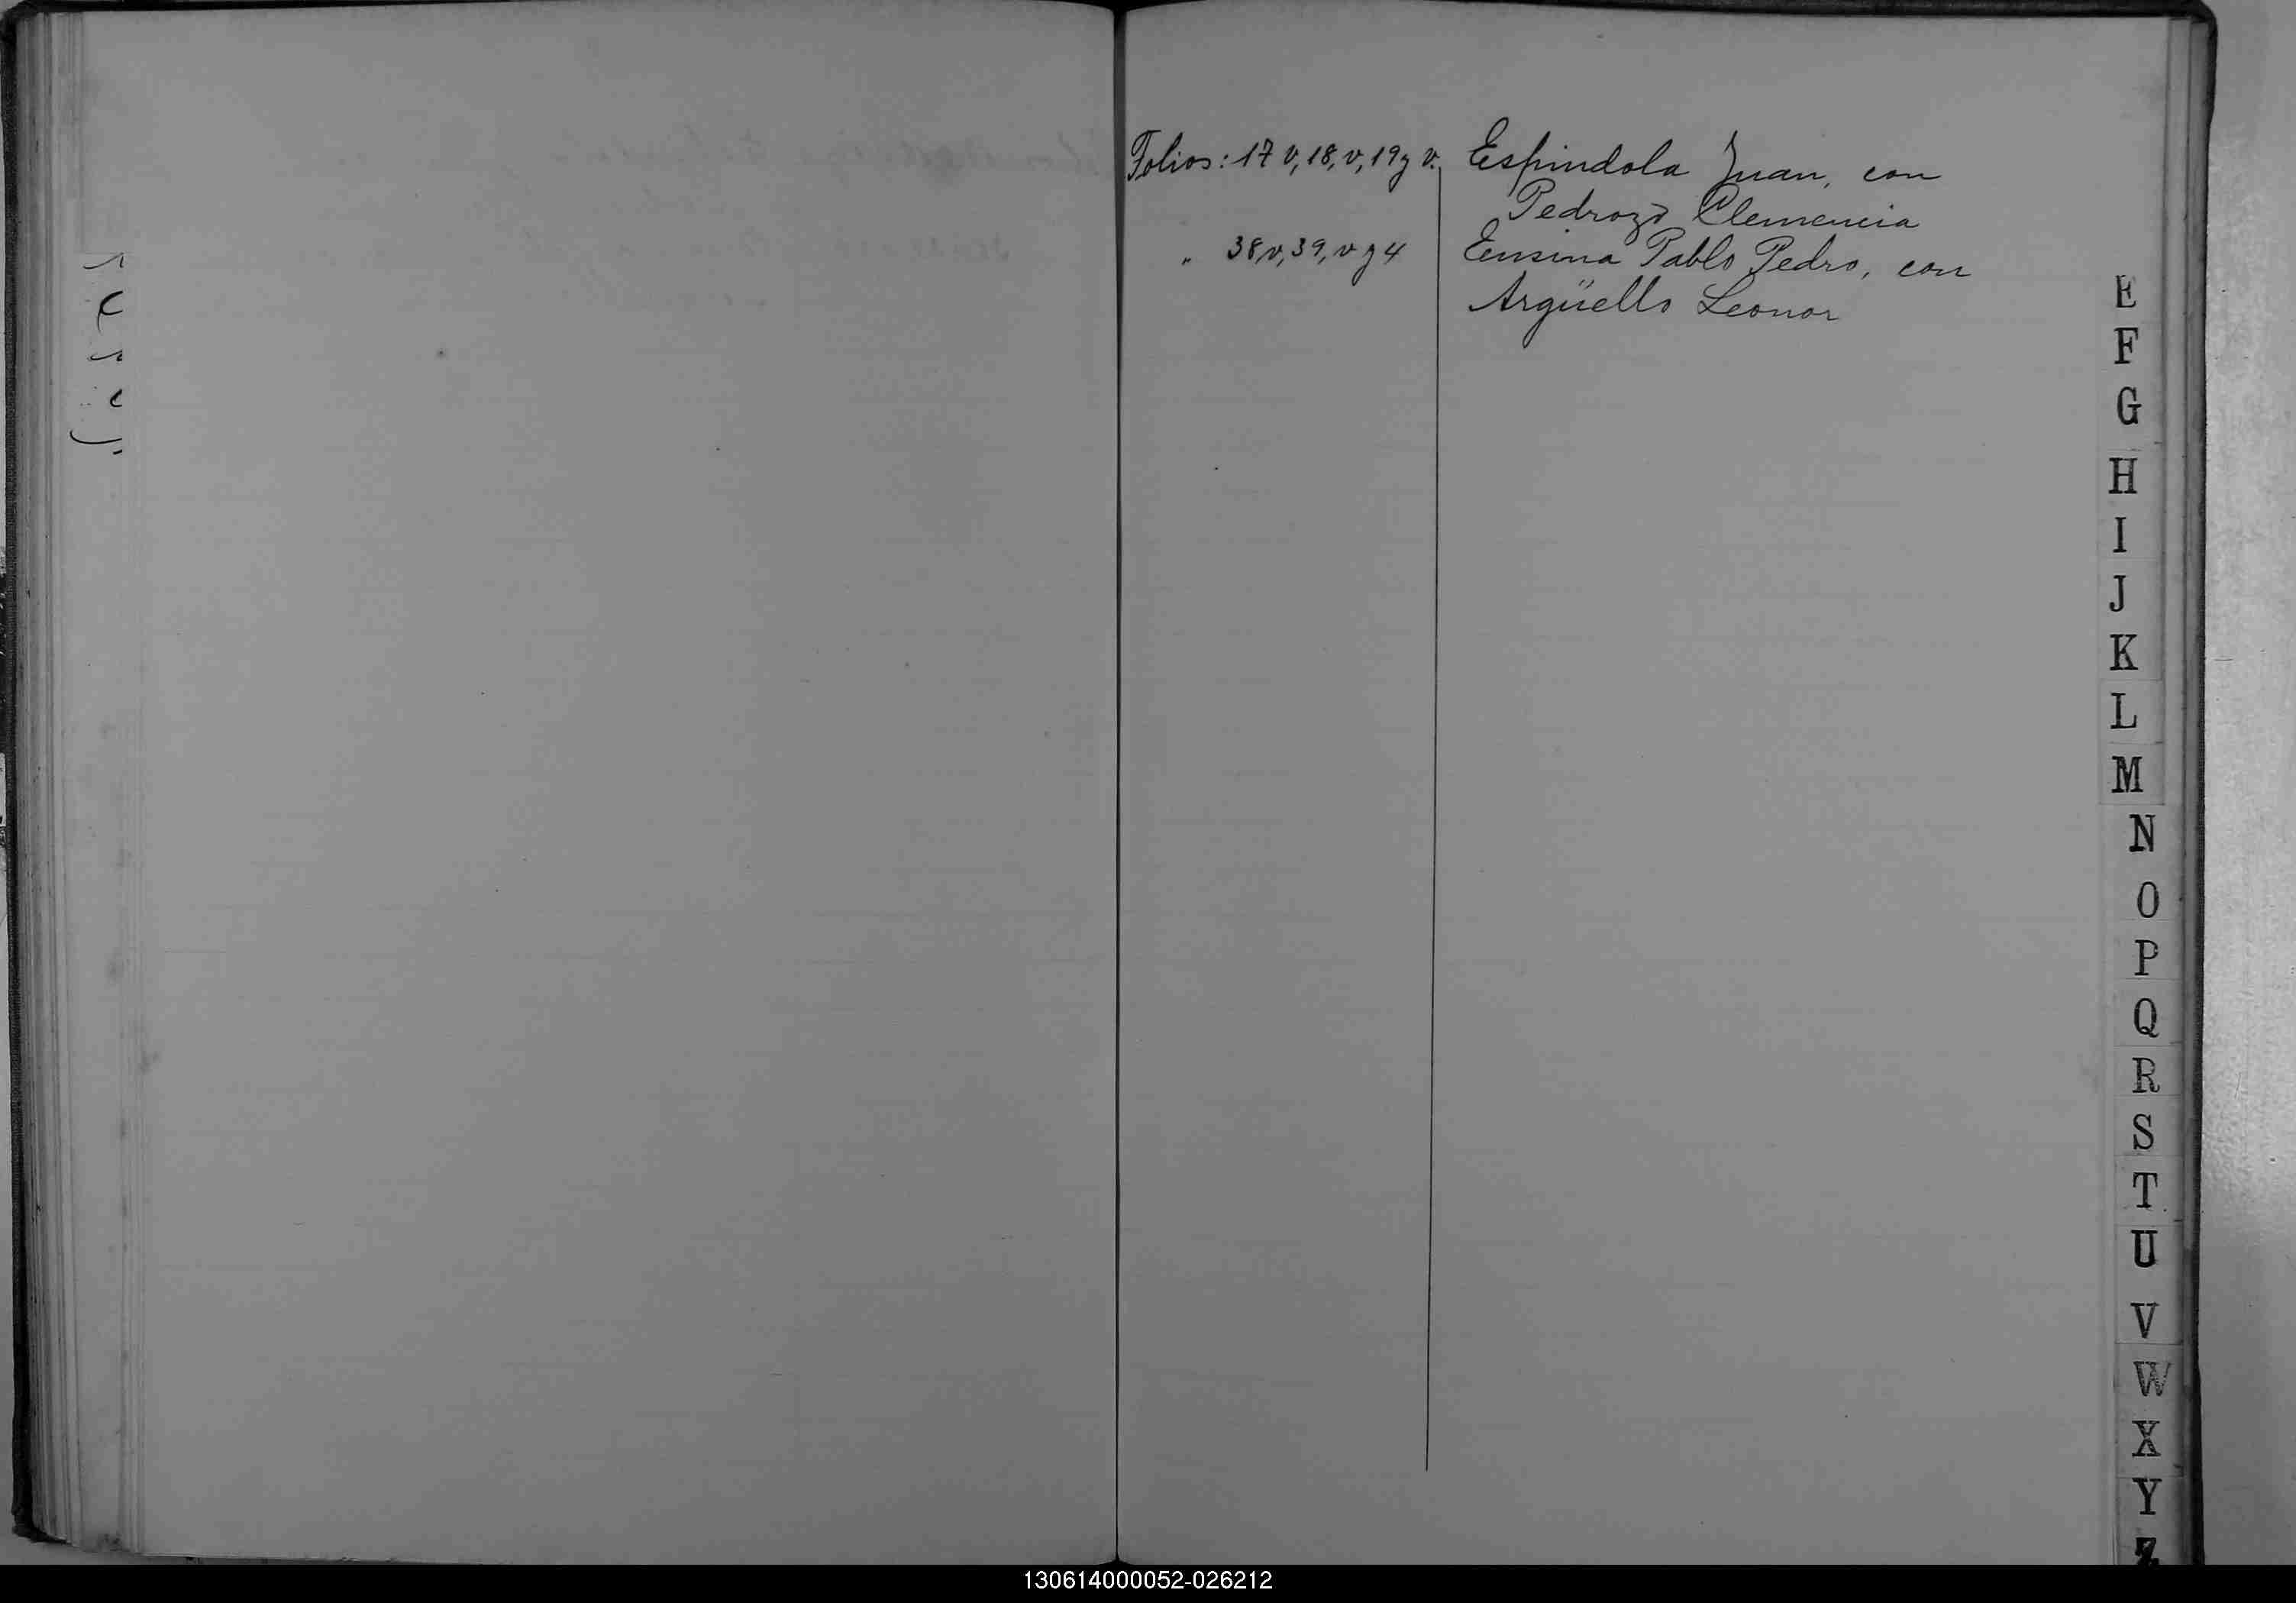 Folios: 17 v, 18, v, 19 y v. Espindola Juan, con
Pedrozo Clemencia
" 38, v, 39, v y 4 Ensina Pablo Pedro, con
Argüello Leonor
E
F
G
H
I
J
K
L
M
N
O
P
Q
R
S
T
U
V
W
X
Y
Z
130614000052-026212